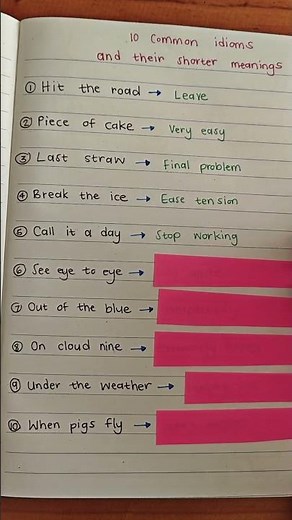 10 Common idioms
and their shorter meanings
① Hit the road → Leave
② Piece of cake → Very easy
③ Last straw → Final problem
④ Break the ice → Ease tension
⑤ Call it a day → Stop working
⑥ See eye to eye →
⑦ Out of the blue →
⑧ On cloud nine →
⑨ Under the weather →
⑩ When pigs fly →